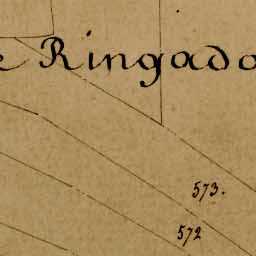 e Ringado
573.
572